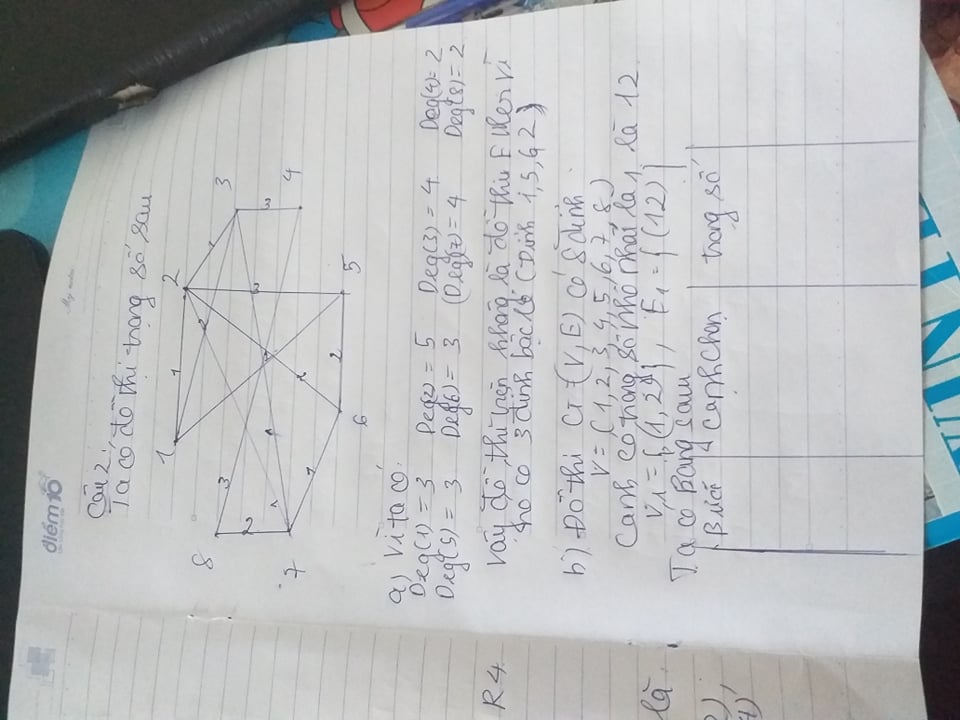 điểm10
My notes
Câu 2:
Ta có đồ thị trọng số sau
1 1 2
8 3 2 1 3
2 3 3
7 1 1 4
1 2
6 2 5
a) Vì ta có
Deg(1) = 3 Deg(2) = 5 Deg(3) = 4 Deg(4) = 2
Deg(5) = 3 Deg(6) = 3 (Deg(7) = 4 Deg(8) = 2
R4
Vậy đồ thị trên không là đồ thị Euler vì
nó có 3 đỉnh bậc lẻ (Đỉnh 1, 5, 6, 2)
b) Đồ thị G = (V, E) có 8 đỉnh
V = (1, 2, 3, 4, 5, 6, 7, 8)
Cạnh có trọng số nhỏ nhất là 1 là 12
là
V1 = {(1, 2)}, E1 = {(12)}
Ta có Bảng sau
2),
Bước Cạnh Chọn trọng số